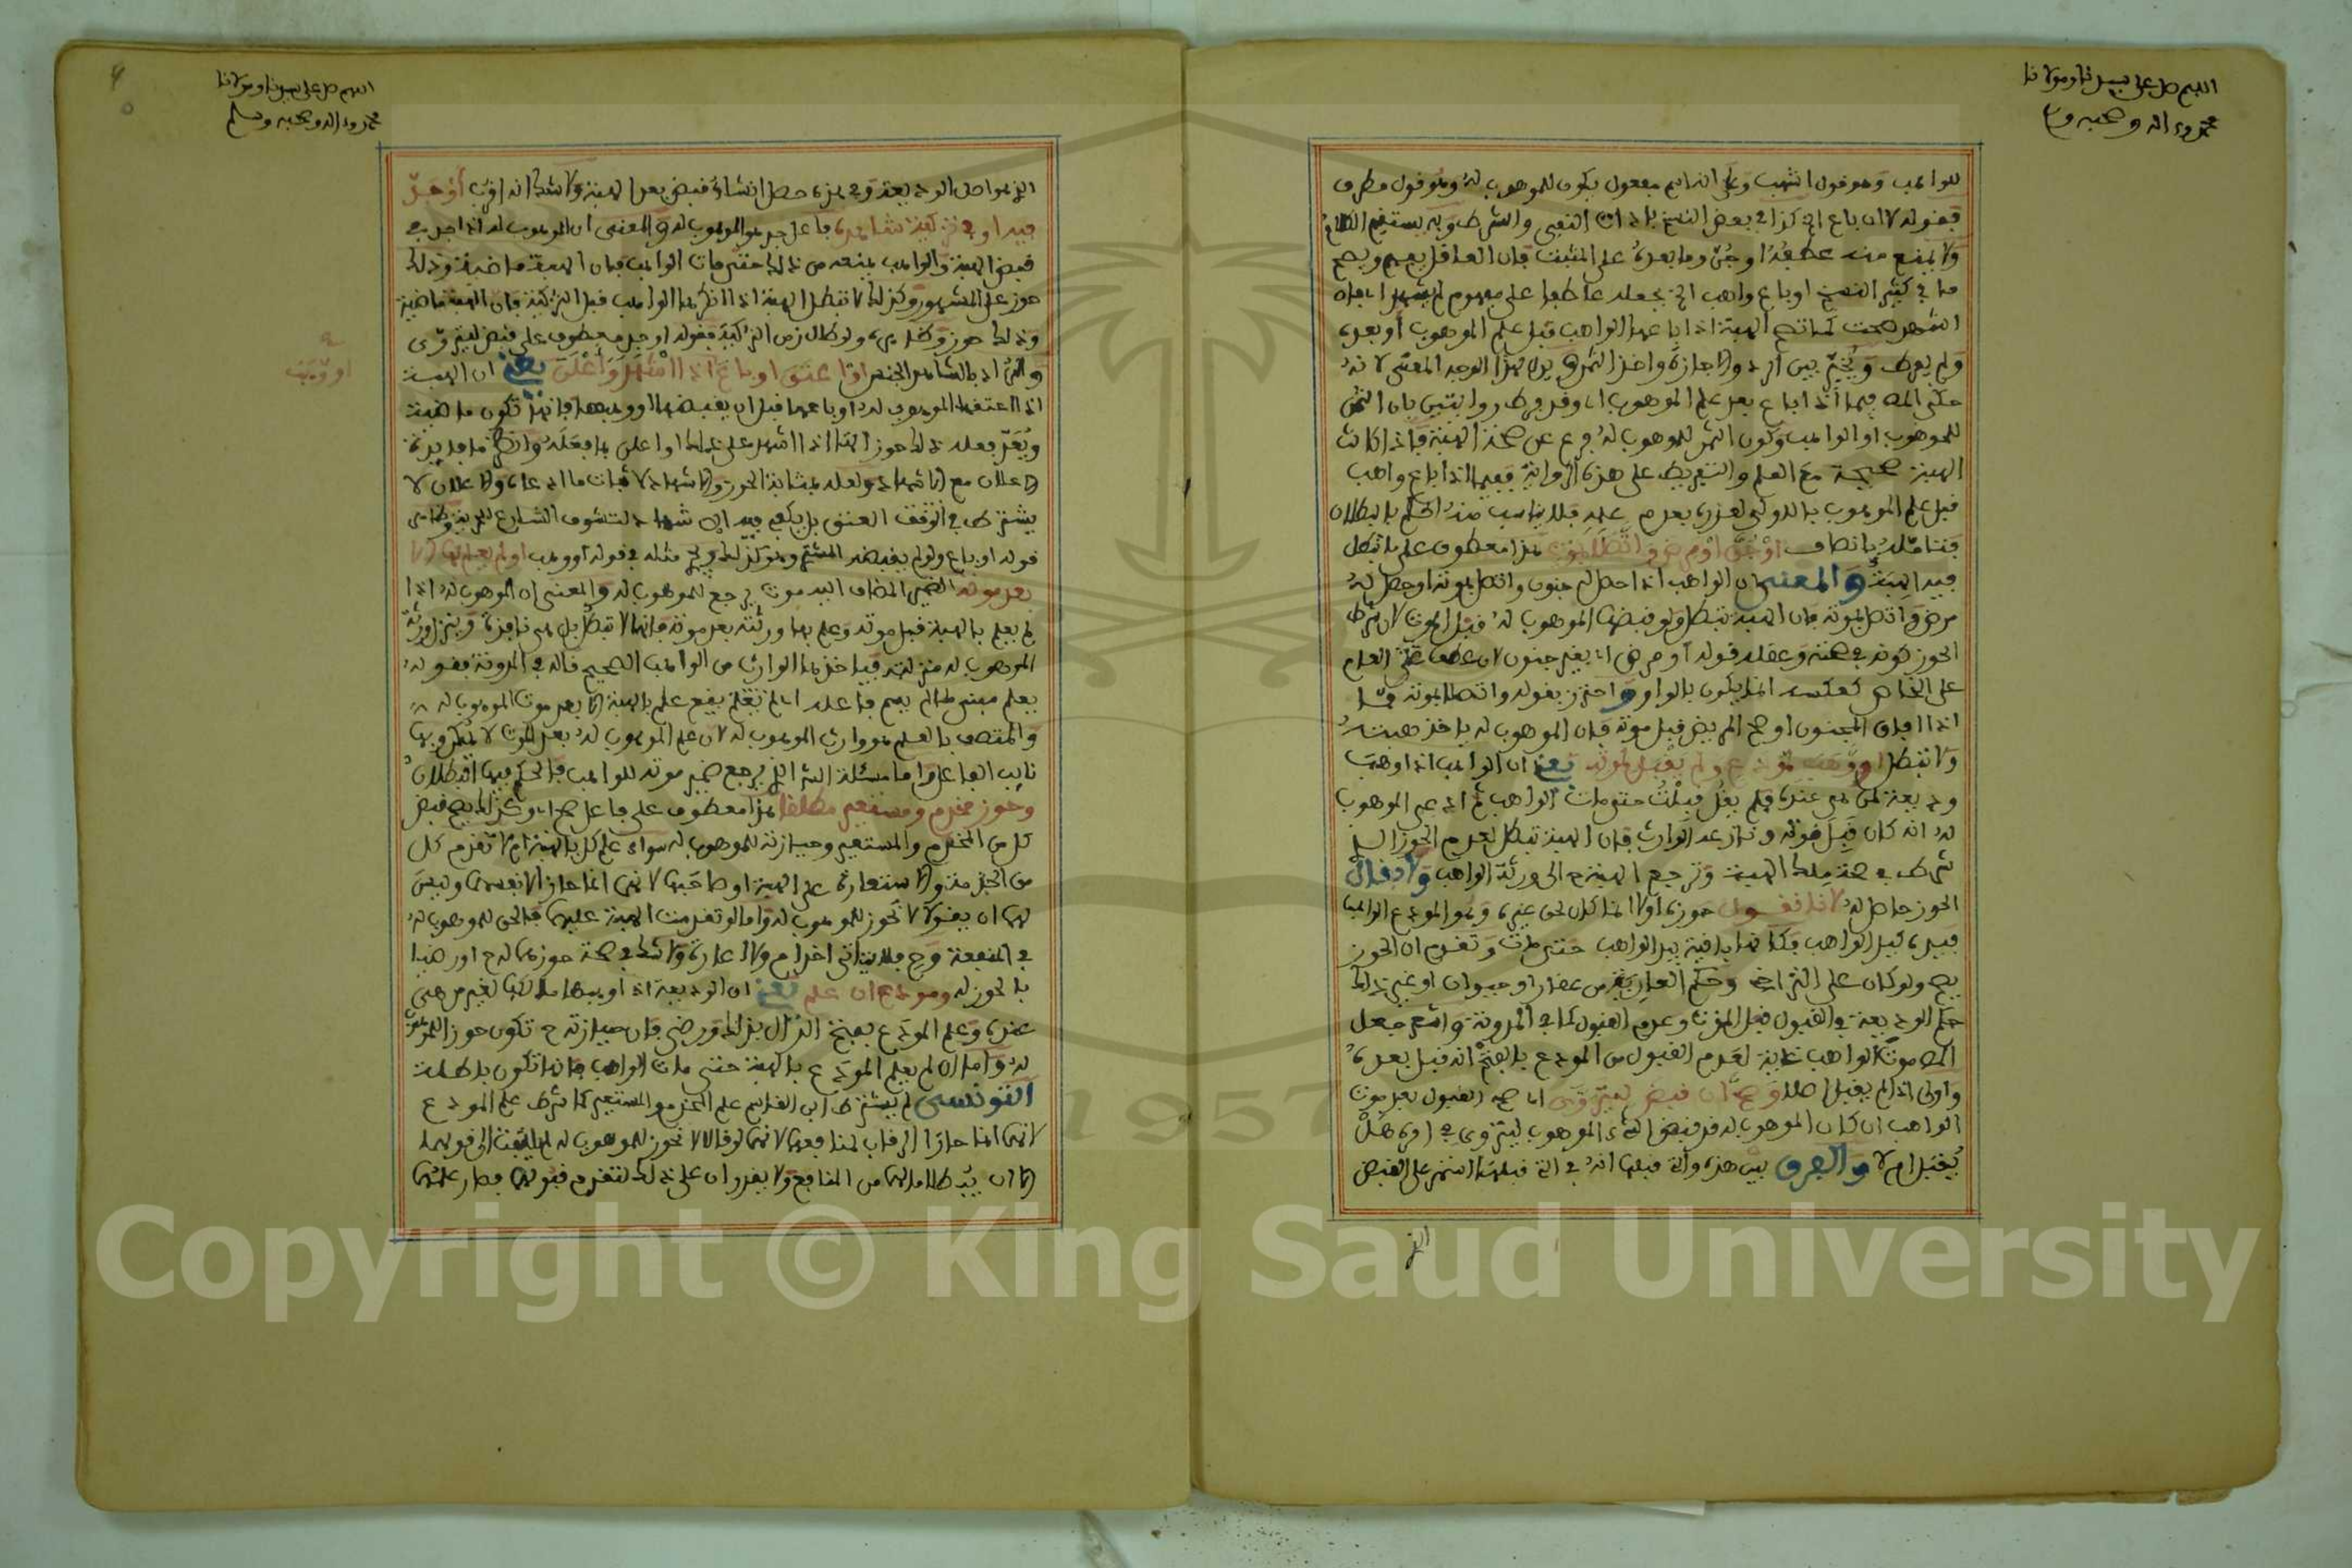 اللهم صل على سيدنا ومولانا
محمد وءاله وصحبه وسلم
للواهب وهو قول اشهب وعلى انه اسم مفعول يكون للموهوب له وهو قول مطرف
فقوله لا ان باع الخ كذا في بعض النسخ باداة النفي والشرط وبه يستقيم الكلام
ولا يمنع منه عطفه او جن وما بعده على المثبت فان العاقل يفهم ويصح
ما في كثير النسخ او باع واهب الخ بجعله عاطفا على مفهوم لم يشهد اي فان
اشهد صحت كما تصح الهبة اذا باعها الواهب قبل علم الموهوب او بعده
ولم يفرط ويخير بين الرد والاجازة واخذ الثمن هذا الوجه المعنى لانه
حكى المص فيما اذا باع بعد علم الموهوب اي وقد فرط روايتين بان الثمن
للموهوب او الواهب وكون الثمن للموهوب له فرع عن صحة الهبة فاذا كانت
الهبة صحيحة مع العلم والتفريط على هذه الرواية ففيما اذا باع واهب
قبل علم الموهوب بالاولى لعذره بعدم علمه فلا يناسب منه الحكم بالبطلان
فتامله بانصاف او جن او مرض واتصلا بموته هذا معطوف على ما تبطل
فيه الهبة والمعنى ان الواهب اذا حصل له جنون واتصل بموته او حصل له
مرض واتصل بموته فان الهبة تبطل ولو قبضها الموهوب له قبل الموت لان شرط
الحوز كونه في صحته وعقله قوله او مرض اي بغير جنون لان عطف العام
على الخاص كعكسه انما يكون بالواو واحترز بقوله واتصلا بموته عما
اذا افاق المجنون او صح المريض قبل موته فان الموهوب له ياخذ هبته
ولا تبطل او وهب لمودع ولم يقبل لموته يعني ان الواهب اذا وهب
وديعة لمن هي عنده فلم يقل قبلت حتى مات الواهب ثم ادعى الموهوب
له انه كان قبل موته ونازعه الوارث فان الهبة تبطل لعدم الحوز الذي
شرط في صحة ملك الهبة وترجع الهبة ح الى ورثة الواهب ولا يقال
الحوز حاصل له لانا نقول حوزه اولا انما كان لحق غيره وهو المودع الواهب
فيده كيد الواهب فكانها باقية بيد الواهب حتى مات وتقدم ان الحوز
يصح ولو كان على التراخي وحكم العارية من عقار او حيوان او غير ذلك
حكم الوديعة في القبول قبل الموت وعدم القبول كما في المدونة وانتفى جعل
المص موت الواهب غاية لعدم القبول من المودع بالصحة انه قبل بعده
واولى اذا لم يقبل اصلا وصح ان قبض ليتروى اي صح القبول بعد موت
الواهب ان كان الموهوب له قد قبض الشيء الموهوب ليتروى في امره هل
يقبل ام لا والفرق بين هذه والتي قبلها انه في التي قبلها استمر على القبض
الذي
اللهم صل على سيدنا ومولانا
محمد وءاله وصحبه وسلم
الذي هو اصل الوديعة وفي هذه حصل انشاء قبض بعد الهبة ولا شك انه اقوى او جد
فيه او في تزكية شاهده فاعل جد هو الموهوب له والمعنى ان الموهوب له اذا جد في
قبض الهبة والواهب يمنعه من ذلك حتى مات الواهب فان الهبة ماضية وذلك
حوز على المشهور وكذلك لا تبطل الهبة اذا انكرها الواهب قبل التزكية فان الهبة ماضية
وذلك حوز وظاهره ولو طال زمن التزكية فقوله او جد معطوف على قبض ليتروى
والمراد بالشاهد الجنس او اعتق او باع او وهب اذا اشهد واعلن يعني ان الهبة
او وهب
اذا اعتقها الموهوب له او باعها قبل ان يقبضها او وهبها فانها تكون ماضية
ويعد فعله ذلك حوزا لها اذا اشهد على ذلك او اعلن بما فعله
الاعلان مع الاشهاد ولعله بمثابة الحوز والاشهاد لاثبات ما ادعاه والاعلان لا
يشترط في العتق بل يكفي فيه الاشهاد لتشوف الشارع للحرية وظاهر
قوله او باع ولو لم يقبضه المشتري وهو كذلك ويجري مثله في قوله او وهب او لم يعلم بها الا
بعد موته الضمير المضاف اليه موت يرجع للموهوب له والمعنى ان الموهوب له اذا
لم يعلم بالهبة قبل موته وعلم بها ورثته بعد موته فانها لا تبطل بل هي نافذة وينزل ورثة
الموهوب له منزلته فياخذها الوارث من الواهب الصحيح قاله في المدونة فقوله
يعلم مبني لما لم يسم فاعله اي لم يقع علم بالهبة الا بعد موت الموهوب له
والمتصف بالعلم هو وارث الموهوب له لان علم الموهوب له بعد الموت لا يمكن وبها
نائب الفاعل واما مسئلة التي يرجع ضمير موته للواهب فالحكم فيها البطلان
وحوز مخدم ومستعير مطلقا هذا معطوف على فاعل صح اي وكذلك يصح قبض
كل من المخدم والمستعير وحيازته للموهوب له سواء علم كل بالهبة ام لا تقدم كل
من الخدمة والاستعارة على الهبة او صاحبها لانهما انما حازا لانفسهما وليس
لهما ان يقولا لا نحوز للموهوب له واما لو تقدمت الهبة عليهما فالحق للموهوب له
في المنفعة وح فلا يتاتى اخدام ولا اعارة ولا شك في صحة حوزهما له ح اذا رضيا
بالحوز له ومودع ان علم يعني ان الوديعة اذا وهبها مالكها لغير من هي
عنده وعلم المودع بفتح الدال بذلك ورضي فان حيازته ح تكون حوزا للموهوب
له واما ان لم يعلم المودع بالهبة حتى مات الواهب فانها تكون باطلة
التونسي لم يشترط ابن القاسم علم المخدم والمستعير كما شرط علم المودع
لانهما انما حازا الرقاب لمنافعهما لانهما لو قالا لا نحوز للموهوب له لم يلتفت الى قولهما
الا ان يبطلا ما لهما من المنافع ولا يقدران على ذلك لتقدم قبولهما فصار علمهما